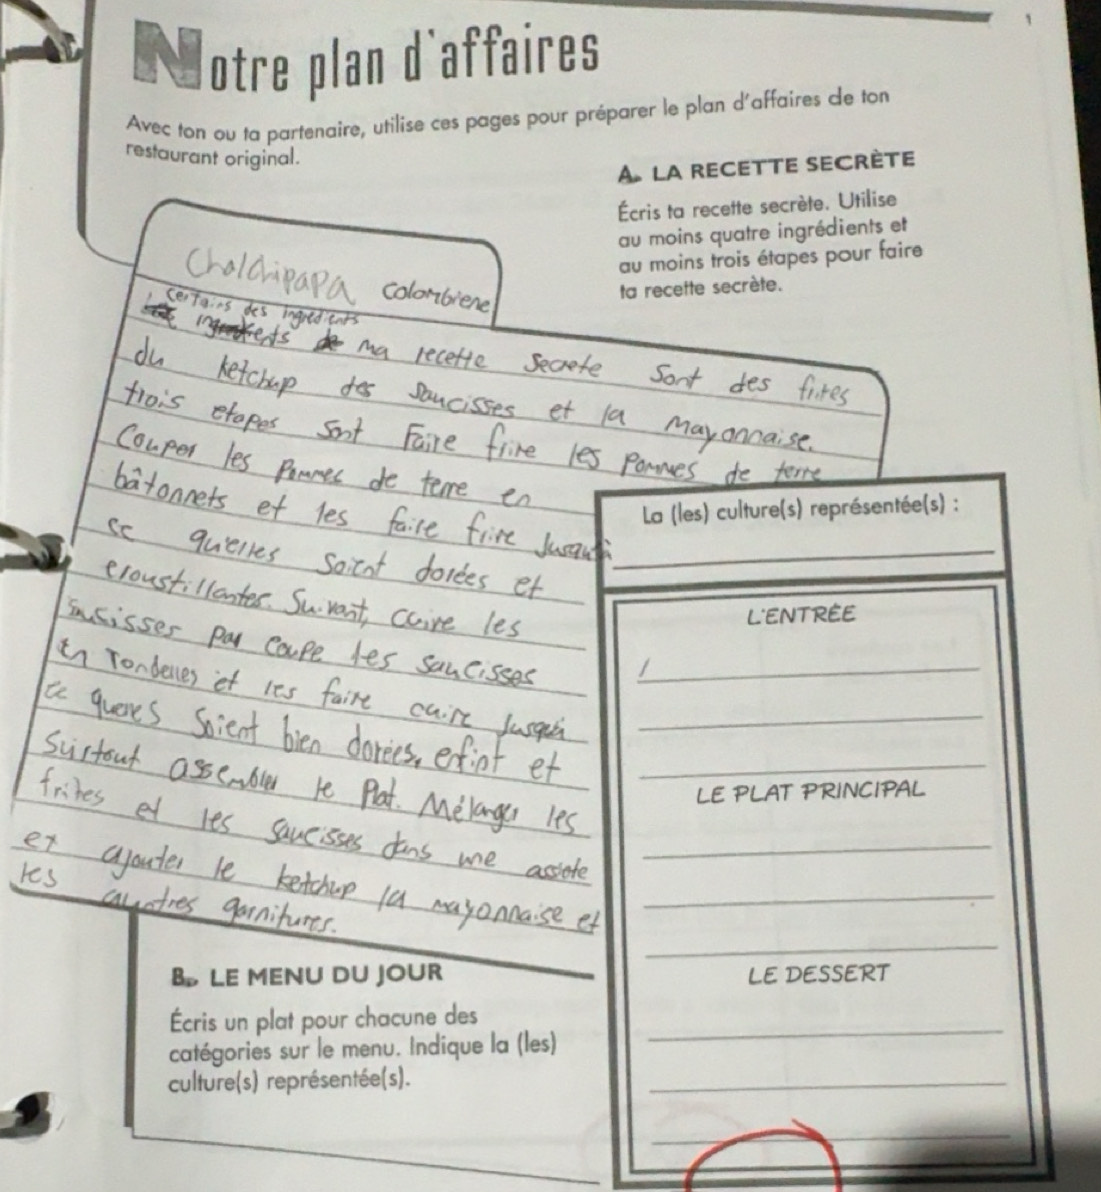 1
Notre plan d'affaires
Avec ton ou ta partenaire, utilise ces pages pour préparer le plan d'affaires de ton
restaurant original.
A. LA RECETTE SECRÈTE
Écris ta recette secrète. Utilise
au moins quatre ingrédients et
au moins trois étapes pour faire
ta recette secrète.
Cholchipapa colombiene
certains des ingredients
ma recette secrete sont des frites
du ketchup des saucisses et la mayonnaise.
trois etapes sont Faire frire les pommes de terre
Couper les pommes de terre en
bâtonnets et les faire frire Jusqu'à
ce quelles soient dorées et
croustillantes. Suivant, cuire les
saucisses par coupe les saucisses
en rondelles et les faire cuire Jusqu'à
ce quelles soient bien dorées, efint et
surtout assembler le plat. Mélanger les
frites et les saucisses dans une assiete
et ajouter le ketchup la mayonnaise et
les garnitures.
La (les) culture(s) représentée(s) :
L'ENTRÉE
LE PLAT PRINCIPAL
LE DESSERT
B. LE MENU DU JOUR
Écris un plat pour chacune des
catégories sur le menu. Indique la (les)
culture(s) représentée(s).